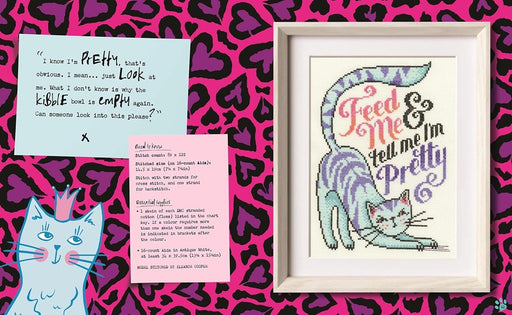 "I know I'm PrEttY, that's
obvious. I mean... just LooK at
me. What I don't know is why the
KiBBLE bowl is EmPtY again.
Can someone look into this please?"
x
Need to know
Stitched size (on 16-count Aida):
Stitch with two strands for
cross stitch, and one strand
for backstitch.
Essential supplies
• 1 skein of each DMC stranded
cotton (floss) listed in the chart
key. If a colour requires more
than one skein the number needed
is indicated in brackets after
the colour.
• 16-count Aida in Antique White,
MODEL STITCHED BY ELEANOR COOPER
Feed
Me &
tell me I'm
Pretty